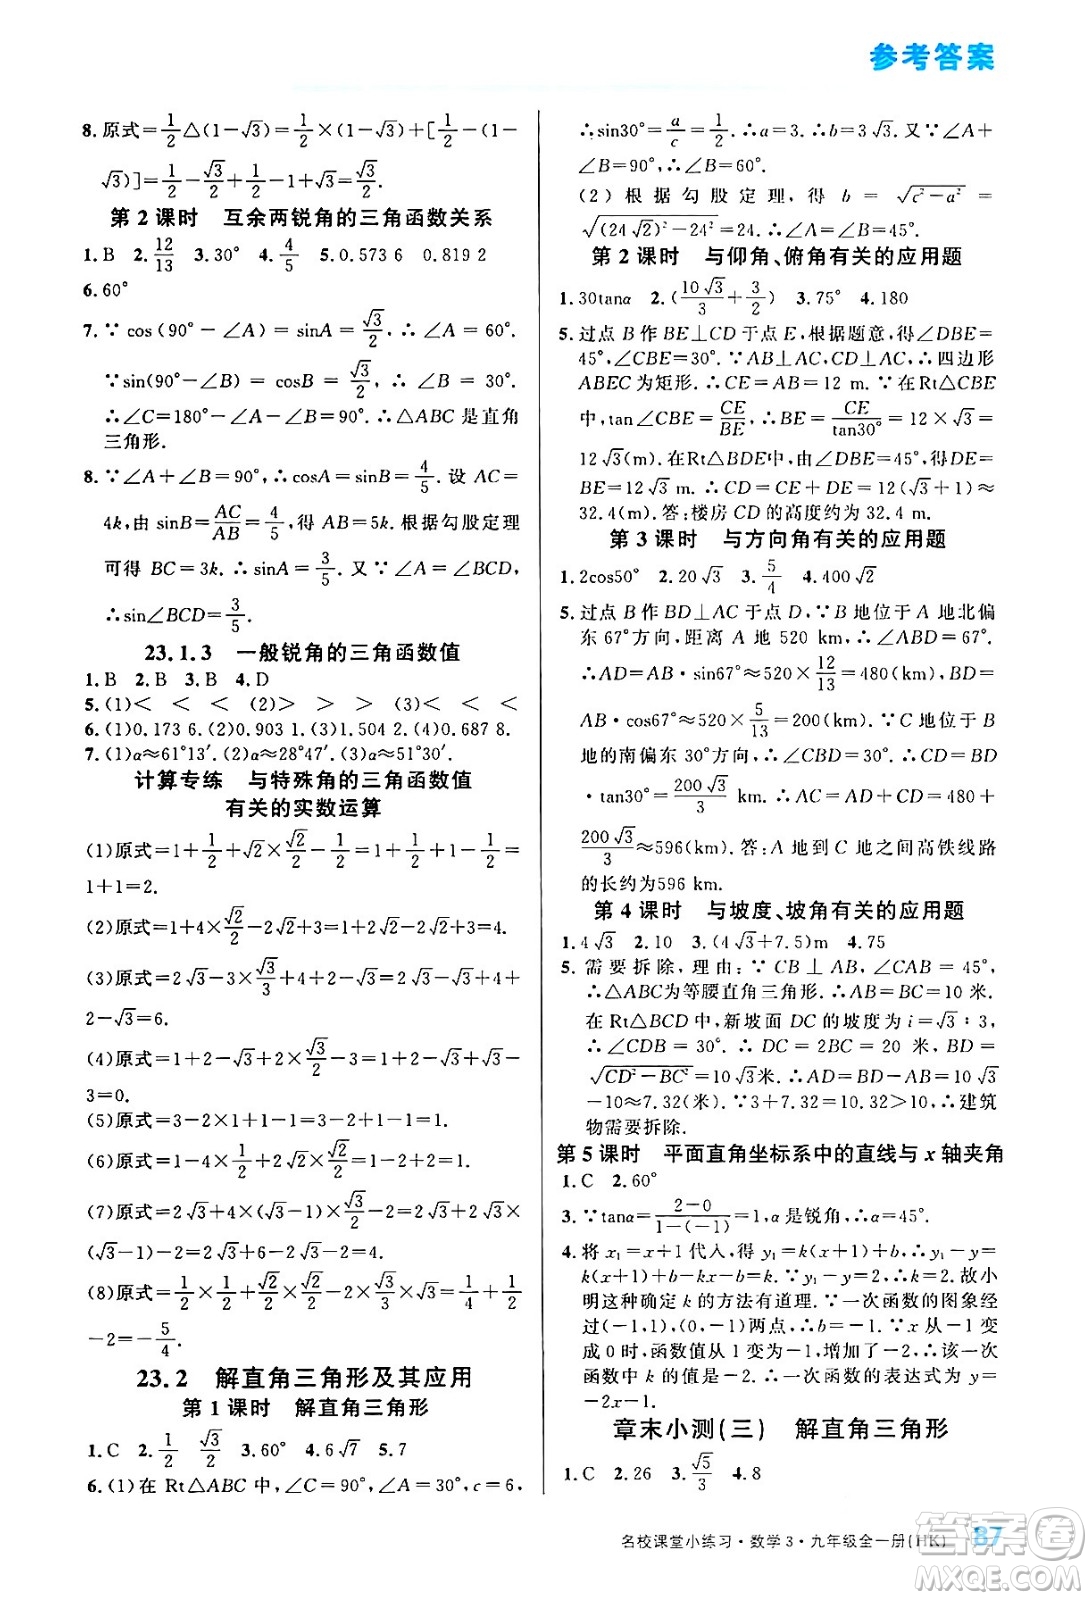 参考答案
8.原式=1/2△(1-√3)=1/2×(1-√3)+[1/2-(1-
√3)]=1/2-√3/2+1/2-1+√3=√3/2.
第2课时 互余两锐角的三角函数关系
1.B 2.12/13 3.30° 4.4/5 5.0.573 6 0.819 2
6.60°
7.∵cos(90°-∠A)=sinA=√3/2,∴∠A=60°.
∵sin(90°-∠B)=cosB=√3/2,∴∠B=30°.
∴∠C=180°-∠A-∠B=90°.∴△ABC是直角
三角形.
8.∵∠A+∠B=90°,∴cosA=sinB=4/5.设AC=
4k,由sinB=AC/AB=4/5,得AB=5k.根据勾股定理
可得BC=3k.∴sinA=3/5.∵∠A=∠BCD,
∴sin∠BCD=3/5.
23.1.3 一般锐角的三角函数值
1.B 2.B 3.B 4.D
5.(1)< < <(2)> > >(3)< < <
6.(1)0.173 6(2)0.903 1(3)1.504 2(4)0.687 8
7.(1)α≈61°13′.(2)α≈28°47′.(3)α≈51°30′.
计算专练 与特殊角的三角函数值
有关的实数运算
(1)原式=1+1/2+√2×√2/2=1+1/2+1/2=
1+1=2.
(2)原式=1+4×√2/2-2√2+3=1+3=4.
(3)原式=2√3-3×√3/3+4=2√3-√3+4+
2-√3=6.
(4)原式=1+2-√3+2×√3/2-3=1+2-√3+√3-
3=0.
(5)原式=3-2×1+1-1=3-2+1-1=1.
(6)原式=4×1/2+2√3-1-2√3=2-1=1.
(7)原式=2√3+4×(-√3)-(1-2×√3/2)=2√3+
(√3-1)-2=√3-1-2√3+2+√3+3=4.
(8)原式=1/2×1/2+√2/2×√2/2-√3/2×2√3/3=1/4+1/2
-2=-5/4.
23.2 解直角三角形及其应用
第1课时 解直角三角形
1.C 2.1/2 √3/2 3.60° 4.6√7 5.7
6.(1)在Rt△ABC中,∠C=90°,∠A=30°,c=6,
∴sin30°=a/c=1/2.∴a=3.∴b=3√3.又∵∠A+
∠B=90°,∴∠B=60°.
(2)根据勾股定理,得b=√(c²-a²)=
√((24√2)²-24²)=24.∴∠A=∠B=45°.
第2课时 与仰角、俯角有关的应用题
1.30tanα 2.(10√3/3+3/2) 3.75° 4.180
5.过点B作BE⊥CD于点E,根据题意,得∠DBE=
45°,∠CBE=30°.∵AB⊥AC,CD⊥AC,∴四边形
ABEC为矩形.∴CE=AB=12 m.∵在Rt△CBE
中,tan∠CBE=CE/BE,∴BE=CE/tan30°=12×√3=
12√3(m).在Rt△BDE中,∵∠DBE=45°,∴DE=
BE=12√3 m.∴CD=CE+DE=12(√3+1)≈
32.4(m).答:楼房CD的高度约为32.4 m.
第3课时 与方向角有关的应用题
1.2cos50° 2.20√3 3.5/4 4.400√2
5.过点B作BD⊥AC于点D,∵B地位于A地北偏
东67°方向,距离A地520 km,∴∠ABD=67°.
∴AD=AB·sin67°≈520×12/13=480(km),BD=
AB·cos67°≈520×5/13=200(km).∵C地位于B
地的南偏东30°方向,∴∠CBD=30°.∴CD=BD
·tan30°=200√3/3(km).∴AC=AD+CD=480+
200√3/3≈596(km).答:A地到C地之间高铁线路
的长约为596 km.
第4课时 与坡度、坡角有关的应用题
1.4√3 2.10 3.(4√3+7.5)m 4.75
5.需要拆除,理由:∵CB⊥AB,∠CAB=45°,
∴△ABC为等腰直角三角形.∴AB=BC=10米.
在Rt△BCD中,新坡面DC的坡度为i=√3∶3,
∴∠CDB=30°.∴DC=2BC=20米,BD=
√(CD²-BC²)=10√3米.∴AD=BD-AB=10√3
-10≈7.32(米).∵3+7.32=10.32>10,∴建筑
物需要拆除.
第5课时 平面直角坐标系中的直线与x轴夹角
1.C 2.60°
3.∵tanα=(2-0)/(1-(-1))=1,α是锐角,∴α=45°.
4.将x₁=x+1代入,得y₁=k(x+1)+b.∴y₁-y=
k(x+1)+b-kx-b=k.∵y₁-y=k,∴k=k.故小
明这种确定k的方法有道理.∵一次函数的图象经
过(0,1),(-1,-1)两点,∴b=1.∵x由-1变成
0时,函数值由-1变成1,∴k=1-(-1)=2.∴该一
次函数中k=2,b=1,一次函数的表达式为y=
2x+1.
章末小测(三) 解直角三角形
1.C 2.26 3.√5/3 4.8
名校课堂小练习·数学3·九年级全一册(HK) 87
答案圈
MXQE.COM